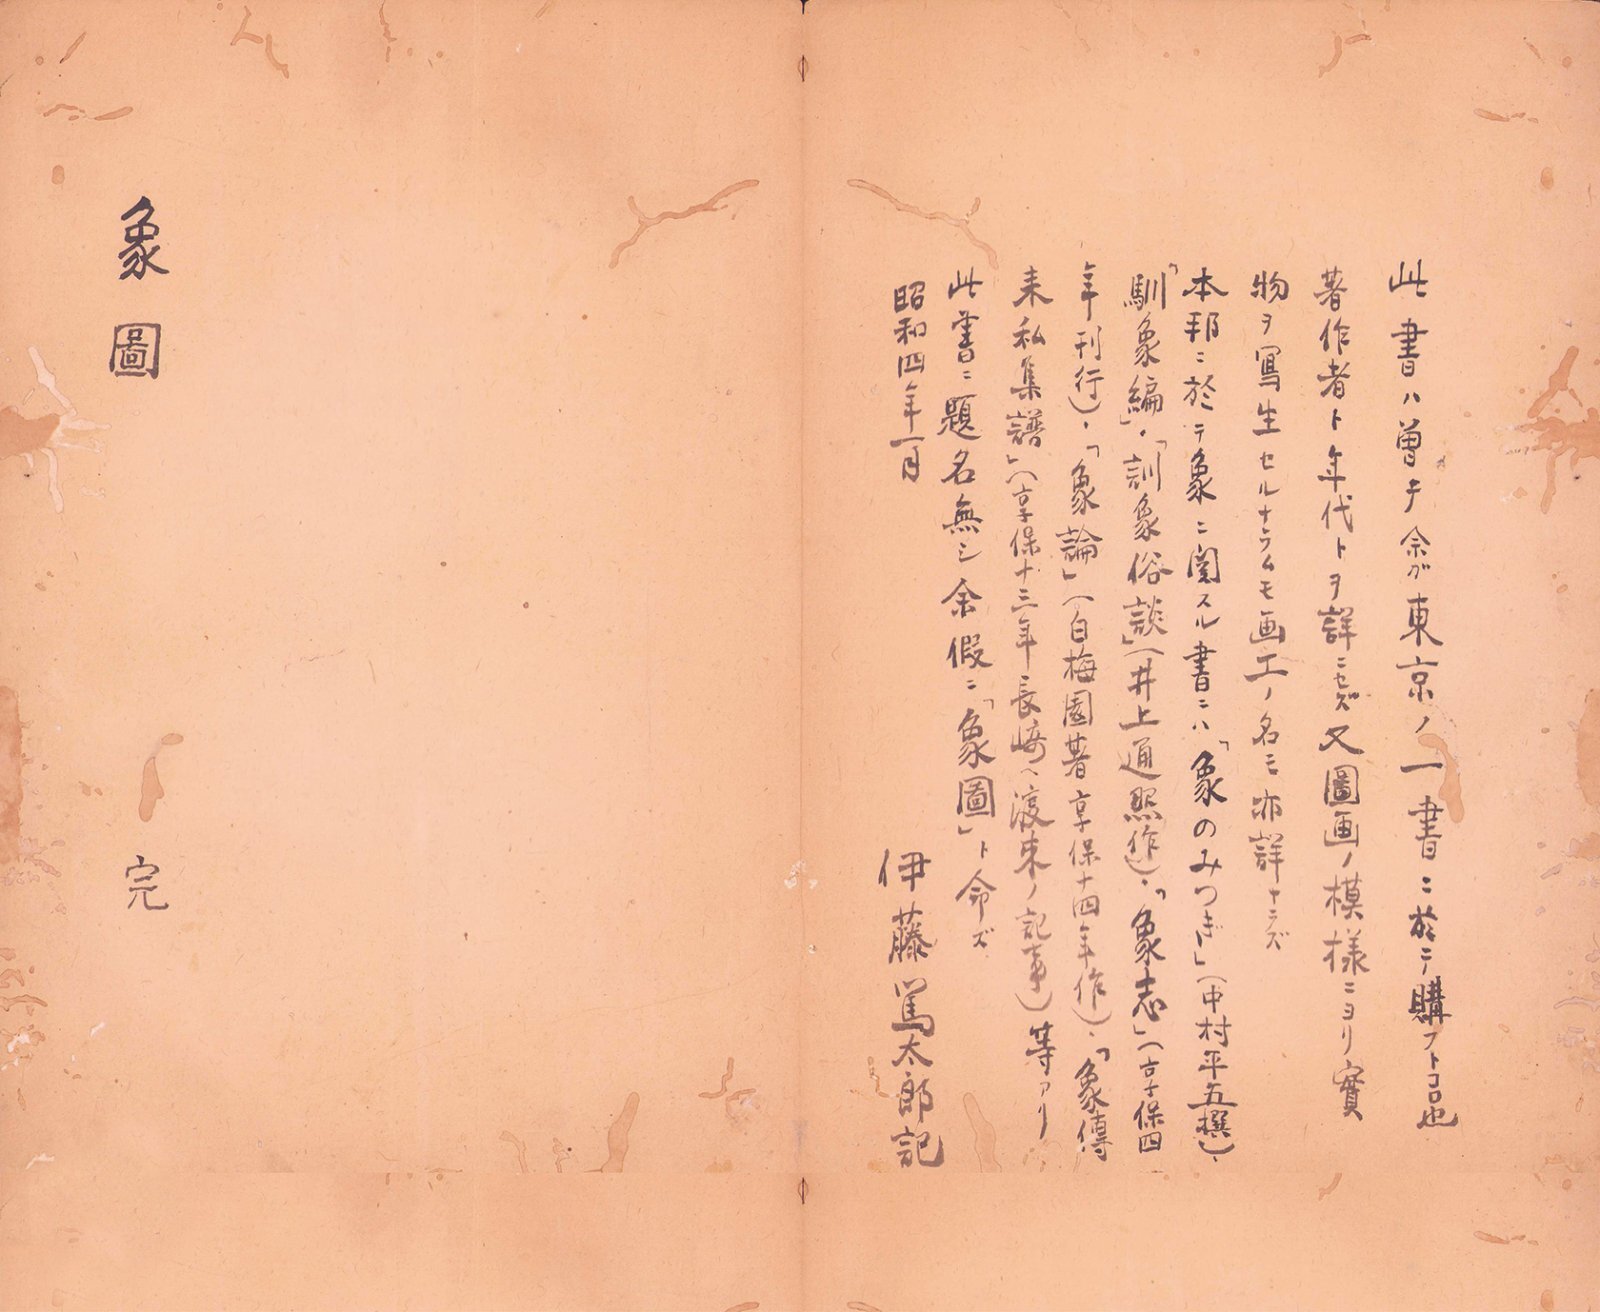 此書ハ曽テ余ガ東京ノ一書ニ於テ購フトコロ也
著作者ト年代トヲ詳ニセズ又圖画ノ模様ニヨリ實
物ヲ寫生セルナラムモ画工ノ名モ亦詳ナラズ
本邦ニ於テ象ニ関スル書ニハ「象のみつぎ」(中村平五撰)、
「馴象編」、「訓象俗談」(井上通熙作)、「象志」(享保四
年刊行)、「象論」(白梅園著享保十四年作)、「象傳
来私集譜」(享保十三年長崎へ渡来ノ記事)等アリ
此書ニ題名無シ余假ニ「象圖」ト命ズ
昭和四年一月
伊藤篤太郎記
象圖
完